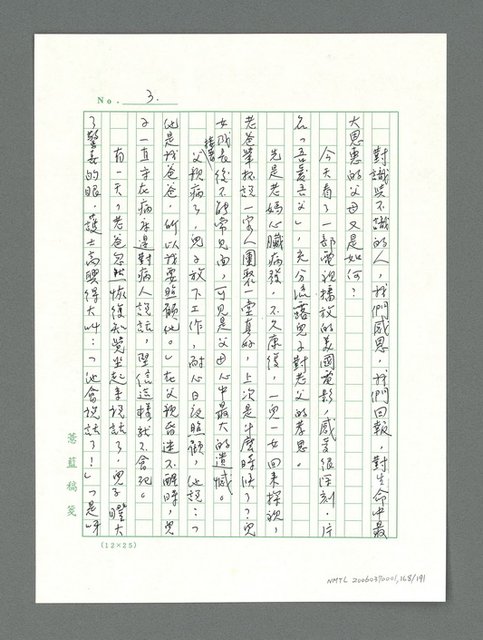 No. 3.
對識與不識的人，我們感恩，我們回報，對生命中最
大恩惠的父母又是如何？
今天看了一部電視播放的美國電影，感受很深刻．片
名「吾愛吾父」，充分流露兒子對老父的孝思。
先是老媽心臟病發，不久康復，一兒一女回來探視，
老爸舉杯說一家人團聚一堂真好，上次是什麼時候了？兒
女成長後不能常見面，可見是父母心中最大的遺憾。
接著父親病了，兒子放下工作，耐心日夜照顧，他說：「
他是我爸爸，所以我要照顧他。」在父親昏迷不醒時，兒
子一直守在病床邊對病人說話，堅信這樣就不會死。
有一天，老爸忽然恢復知覺坐起來說話了，兒子瞪大
了驚喜的眼．護士高興得大叫：「他會說話了！」「是呀
薏藍稿箋
(12×25)
NMTL 20060370001, 168/191